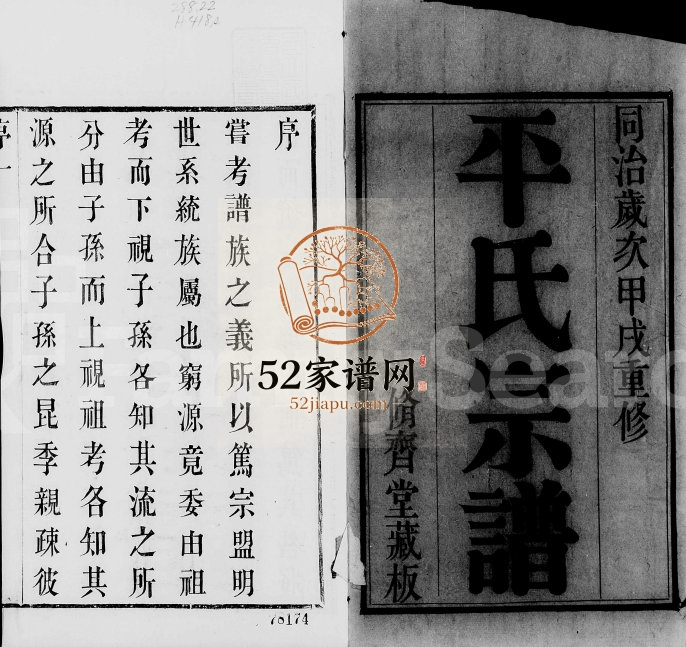 同治歲次甲戌重修
平氏宗譜
齊堂藏板
序
嘗考譜族之義所以篤宗盟明
世系統族屬也窮源竟委由祖
考而下視子孫各知其流之所
分由子孫而上視祖考各知其
源之所合子孫之昆季親疎彼
序一
52家谱网
52jiapu.com
Search
288.22
70174